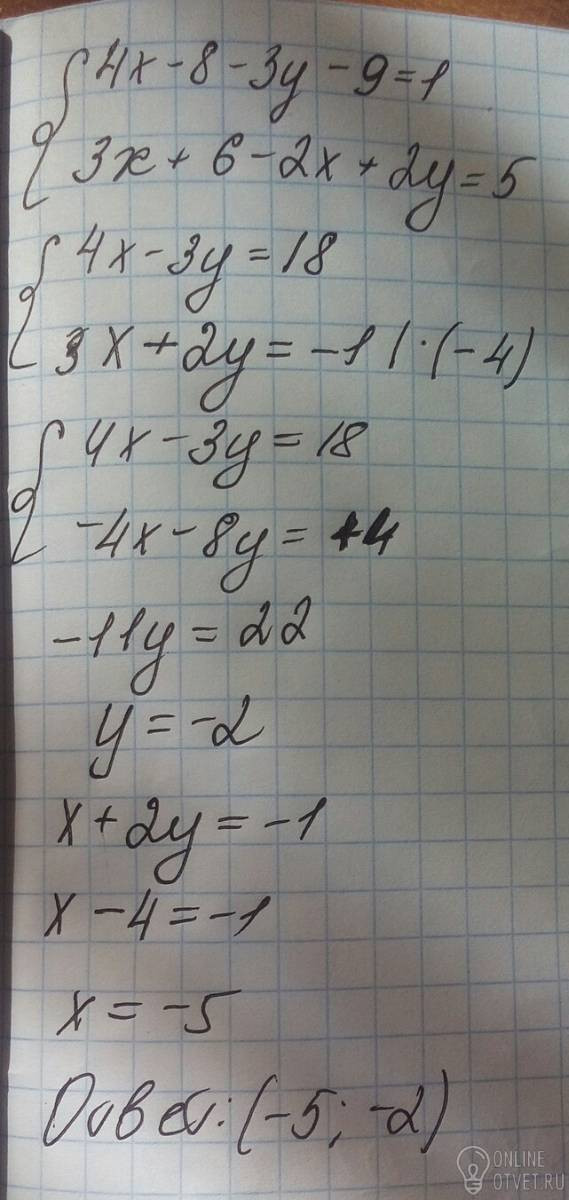 4x - 8 - 3y - 9 = 1
3x + 6 - 2x + 2y = 5
4x - 3y = 18
3x + 2y = -1 | · (-4)
4x - 3y = 18
-4x - 8y = +4
-11y = 22
y = -2
x + 2y = -1
x - 4 = -1
x = -5
Ответ: (-5; -2)
ONLINE
OTVET.RU